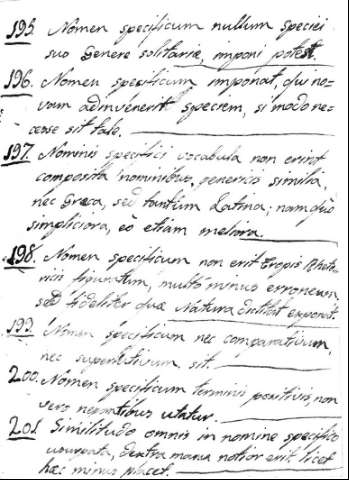 195. Nomen specificum nullum speciei
suo Genere solitariæ, imponi potest.
196. Nomen specificum imponat, qui no-
vam adinvenerit speciem, si modo ne-
cesse sit tale.
197. Nominis specifici vocabula non erint
composita nominibus genericis similia,
nec Græca, sed tantum Latina; nam quo
simpliciora, eo etiam meliora.
198. Nomen specificum non erit tropis Rheto-
ricis figuratum, multo minus erroneum,
sed fideliter quæ Natura dictitat exponat.
199. Nomen specificum nec comparativum,
nec superlativum, sit.
200. Nomen specificum terminis positivis, non
vero negantibus utatur.
201. Similitudo omnis in nomine specifico
usurpata, dextra manu notior erit licet
hæc minus placet.